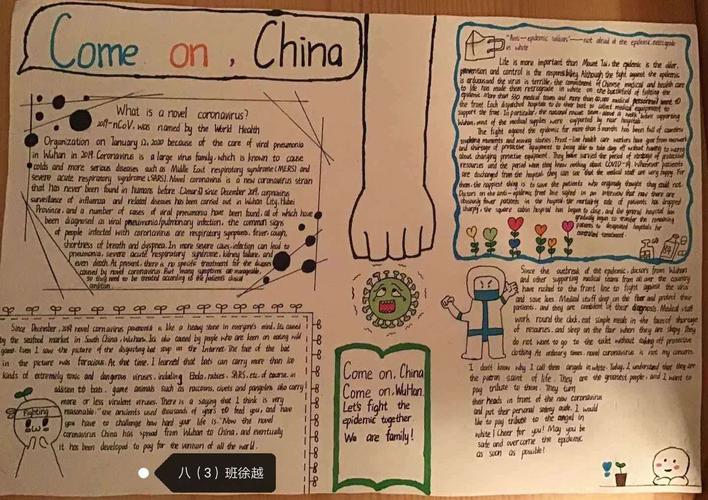 Come on, China
What is a novel coronavirus?
2019-nCoV, was named by the World Health
Organization on January 12, 2020 because of the care of viral pneumonia
in Wuhan in 2019. Coronavirus is a large virus family, which is known to cause
colds and more serious diseases such as Middle East respiratory syndrome (MERS) and
severe acute respiratory syndrome (SARS). Novel coronavirus is a new coronavirus strain
that has never been found in humans before. Since December 2019, coronavirus
surveillance of influenza and related diseases has been carried out in Wuhan City, Hubei
Province, and a number of cases of viral pneumonia have been found, all of which have
been diagnosed as viral pneumonia/pulmonary infection. the common signs
of people infected with coronavirus are respiratory symptoms, fever, cough,
shortness of breath and dyspnea. In more severe cases, infection can lead to
pneumonia, severe acute respiratory syndrome, kidney failure, and
even death. At present, there is no specific treatment for the disease
caused by novel coronavirus. But many symptoms are manageable,
so they need to be treated according to the patient's clinical
condition.
Since December, 2019 novel coronavirus pneumonia is like a heavy stone in everyone's mind. Its caused
by the seafood market in South China, Wuhan. Its also caused by people who are keen on eating wild
game. Even I saw the picture of the disgusting bat soup on the Internet. The face of the bat
in the picture was ferocious. At that time, I learned that bats can carry more than 100
kinds of extremely toxic and dangerous viruses, including Ebola, rabies, SARS, etc. of course, in
addition to bats, game animals such as raccoons, civets and pangolins also carry
more or less virulent viruses. There is a saying that I think is very
reasonable: "the ancients used thousands of years to feed you, and have
you have to challenge how hard your life is." Now the novel
coronavirus China has spread from Wuhan to China, and eventually
it has been developed to pay for the version of all the world.
Fighting
八（3）班徐越
Come on, China
Come on, WuHan
Let's fight the
epidemic together
We are family!
"Anti-epidemic soldiers" — not afraid of the epidemic, retrograde
in white
Life is more important than Mount Tai, the epidemic is the order,
prevention and control is the responsibility. Although the fight against the epidemic
is arduous and the virus is terrible, the commitment of Chinese medical and health care
to life has made them retrograde in white on the battlefield of fighting the
epidemic. More than 330 medical teams and more than medical personnel went to
the front. Each dispatched hospital to do their best to collect medical equipment to
support the front. In particular, the national rescue team before supporting
Wuhan, most of the medical supplies were supported by near hospitals.
The fight against the epidemic for more than 3 months has been full of countless
touching moments and moving stories. Front-line health care workers have gone from
and shortage of protective equipment to being able to take days off without having to worry
about changing protective equipment. They have survived the period of shortage of protective
resources and the period when they knew nothing about COVID-19. Whenever patients
are discharged from the hospital, they can see that the medical staff are very happy. For
them, the happiest thing is to save the patients who originally thought they could not.
Doctors on the anti-epidemic front line said in an interview that now there are
obviously fewer patients in the hospital, the mortality rate of patients has dropped
sharply, the square cabin hospital has begun to close, and the general hospital has
gradually begun to transfer the remaining
patients to designated hospitals for
centralized treatment.
Since the outbreak of the epidemic, doctors from Wuhan
and other supporting medical teams from all over the country
have rushed to the front line to fight against the virus
and save lives. Medical staff sleep on the floor and protect their
patients, and they are confident of their diagnosis. Medical staff
work round the clock, eat simple meals in the face of shortage
of resources, and sleep on the floor when they are sleepy. They
do not want to go to the toilet without taking off protective
clothing. At ordinary times, novel coronavirus is not my concern.
I don't know why I call them angels in white. Today, I understand that they are
the patron saint of life. They are the greatest people, and I want to
pay tribute to them. They turn
their heads in front of the new coronavirus
and put their personal safety aside. I would
like to pay tribute to the angel in
white! Cheer for you! May you be
safe and overcome the epidemic
as soon as possible!